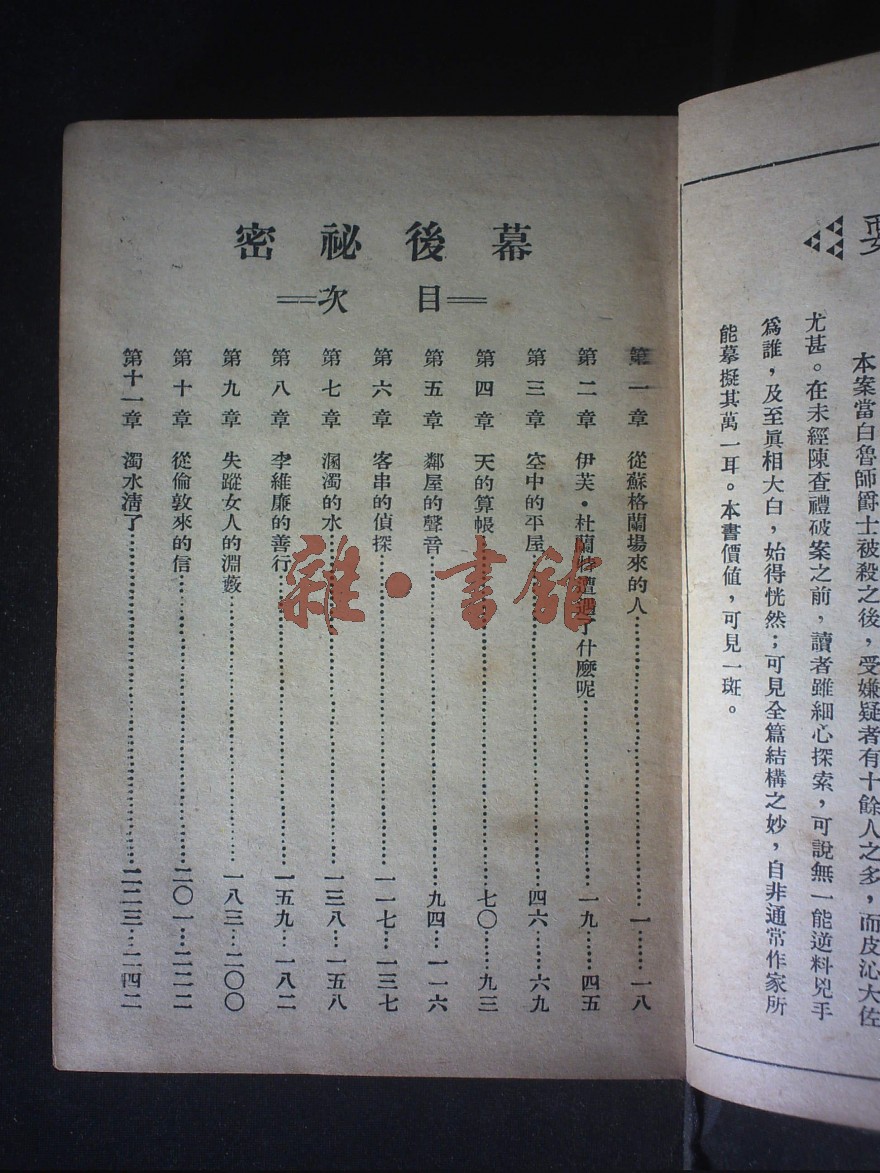 要
本案當白魯師爵士被殺之後，受嫌疑者有十餘人之多，而皮沁大佐
尤甚。在未經陳查禮破案之前，讀者雖細心探索，可說無一能逆料兇手
爲誰，及至眞相大白，始得恍然；可見全篇結構之妙，自非通常作家所
能摹擬其萬一耳。本書價値，可見一斑。
幕後祕密
目次
第一章 從蘇格蘭場來的人……一……一八
第二章 伊芙·杜蘭特遭遇了什麽呢……一九……四五
第三章 空中的平屋……四六……六九
第四章 天的算帳……七〇……九三
第五章 鄰屋的聲音……九四…一一六
第六章 客串的偵探……一一七…一三七
第七章 溷濁的水……一三八…一五八
第八章 李維廉的善行……一五九…一八二
第九章 失蹤女人的淵藪……一八三…二〇〇
第十章 從倫敦來的信……二〇一…二二二
第十一章 濁水淸了……二二三…二四二
雜·書館